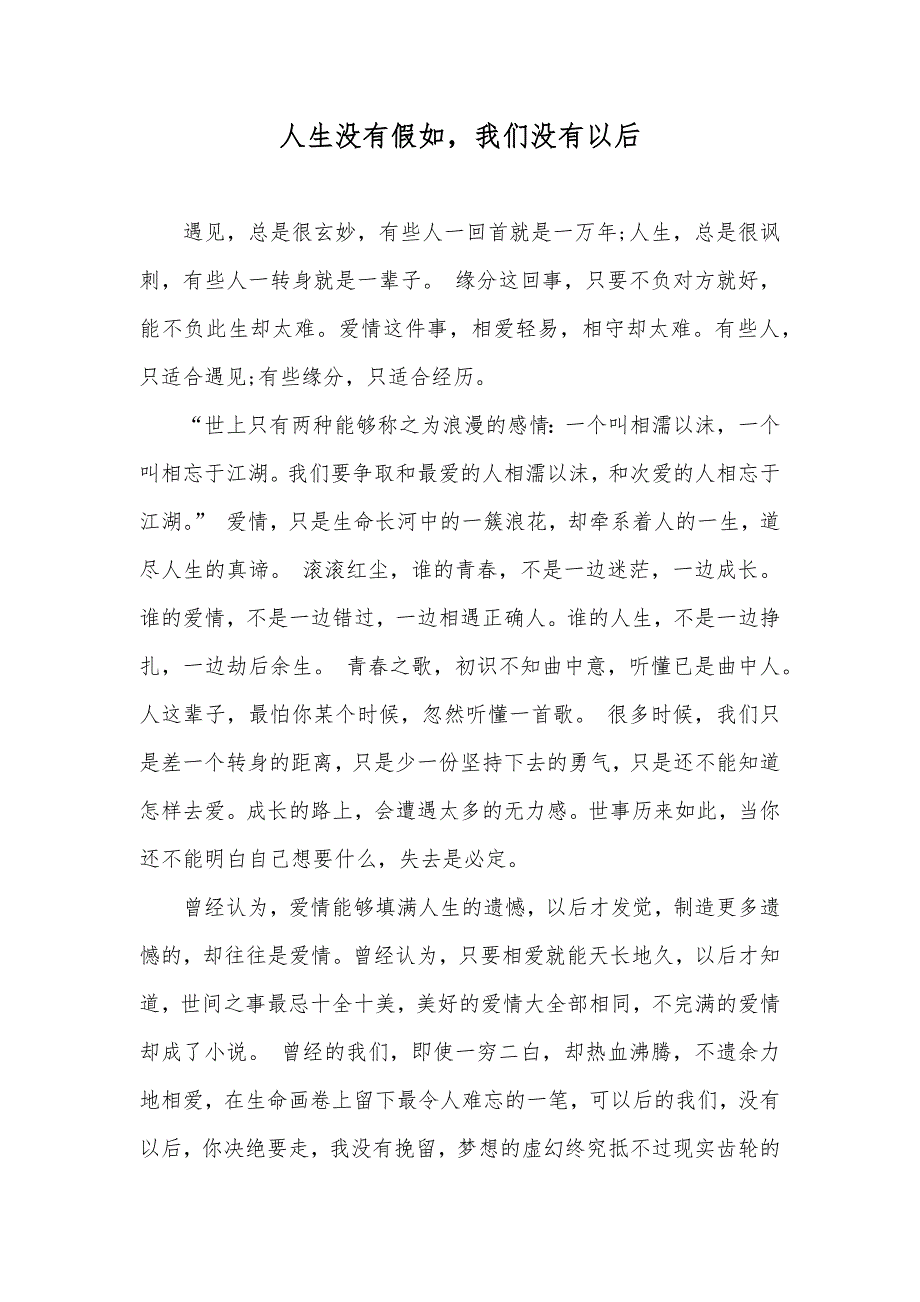 人生没有假如，我们没有以后
遇见，总是很玄妙，有些人一回首就是一万年;人生，总是很讽
刺，有些人一转身就是一辈子。 缘分这回事，只要不负对方就好，
能不负此生却太难。爱情这件事，相爱轻易，相守却太难。有些人，
只适合遇见;有些缘分，只适合经历。
“世上只有两种能够称之为浪漫的感情：一个叫相濡以沫，一个
叫相忘于江湖。我们要争取和最爱的人相濡以沫，和次爱的人相忘于
江湖。” 爱情，只是生命长河中的一簇浪花，却牵系着人的一生，道
尽人生的真谛。 滚滚红尘，谁的青春，不是一边迷茫，一边成长。
谁的爱情，不是一边错过，一边相遇正确人。谁的人生，不是一边挣
扎，一边劫后余生。 青春之歌，初识不知曲中意，听懂已是曲中人。
人这辈子，最怕你某个时候，忽然听懂一首歌。 很多时候，我们只
是差一个转身的距离，只是少一份坚持下去的勇气，只是还不能知道
怎样去爱。成长的路上，会遭遇太多的无力感。世事历来如此，当你
还不能明白自己想要什么，失去是必定。
曾经认为，爱情能够填满人生的遗憾，以后才发觉，制造更多遗
憾的，却往往是爱情。曾经认为，只要相爱就能天长地久，以后才知
道，世间之事最忌十全十美，美好的爱情大全部相同，不完满的爱情
却成了小说。 曾经的我们，即使一穷二白，却热血沸腾，不遗余力
地相爱，在生命画卷上留下最令人难忘的一笔，可以后的我们，没有
以后，你决绝要走，我没有挽留，梦想的虚幻终究抵不过现实齿轮的